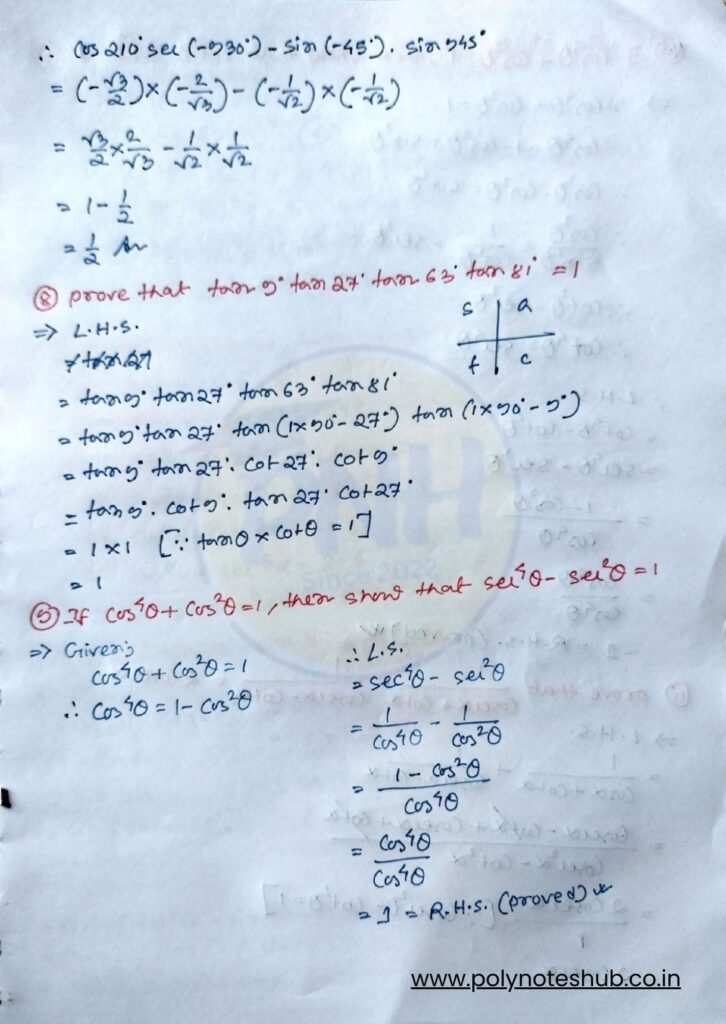 ∴ cos 210° sec (-930°) - sin (-45°). sin 945°
= (-√3/2) × (-2/√3) - (-1/√2) × (-1/√2)
= √3/2 × 2/√3 - 1/√2 × 1/√2
= 1 - 1/2
= 1/2 Ans
⑧ prove that tan 9° tan 27° tan 63° tan 81° = 1
⇒ L.H.S.
s a
t c
= tan 9° tan 27° tan 63° tan 81°
= tan 9° tan 27° tan (1×90° - 27°) tan (1×90° - 9°)
= tan 9° tan 27°. cot 27°. cot 9°
= tan 9°. cot 9°. tan 27° cot 27°
= 1 × 1 [∵ tanθ × cotθ = 1]
= 1
⑨ If cos⁴θ + cos²θ = 1, then show that sec⁴θ - sec²θ = 1
⇒ Given;
cos⁴θ + cos²θ = 1
∴ cos⁴θ = 1 - cos²θ
∴ L.S.
= sec⁴θ - sec²θ
= 1/cos⁴θ - 1/cos²θ
= (1 - cos²θ)/cos⁴θ
= cos⁴θ/cos⁴θ
= 1 = R.H.S. (proved)
PNH
Since 2022
www.polynoteshub.co.in